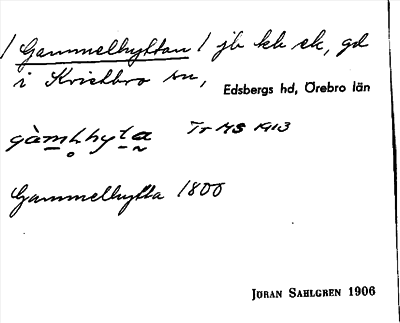 / Gammelhyttan / jb kk sk, gd
i Kvistbro sn,
Edsbergs hd, Örebro län
gàmḷhyta Tr MS 1913
Gammelhytta 1800
JÖRAN SAHLGREN 1906